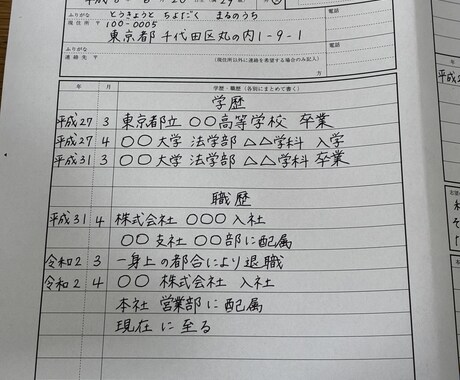 ふりがな とうきょうと ちよだく まるのうち
電話
現住所 〒 100-0005
東京都千代田区丸の内1-9-1
ふりがな
電話
連絡先 〒 (現住所以外に連絡を希望する場合のみ記入)
方
年 月 学歴・職歴(各別にまとめて書く)
学歴
平成27 3 東京都立 〇〇高等学校 卒業
平成27 4 〇〇大学 法学部 △△学科 入学
平成31 3 〇〇大学 法学部 △△学科 卒業
職歴
平成31 4 株式会社 〇〇〇入社
〇〇支社 〇〇部に配属
令和2 3 一身上の都合により退職
令和2 4 〇〇 株式会社 入社
本社 営業部に配属
現在に至る